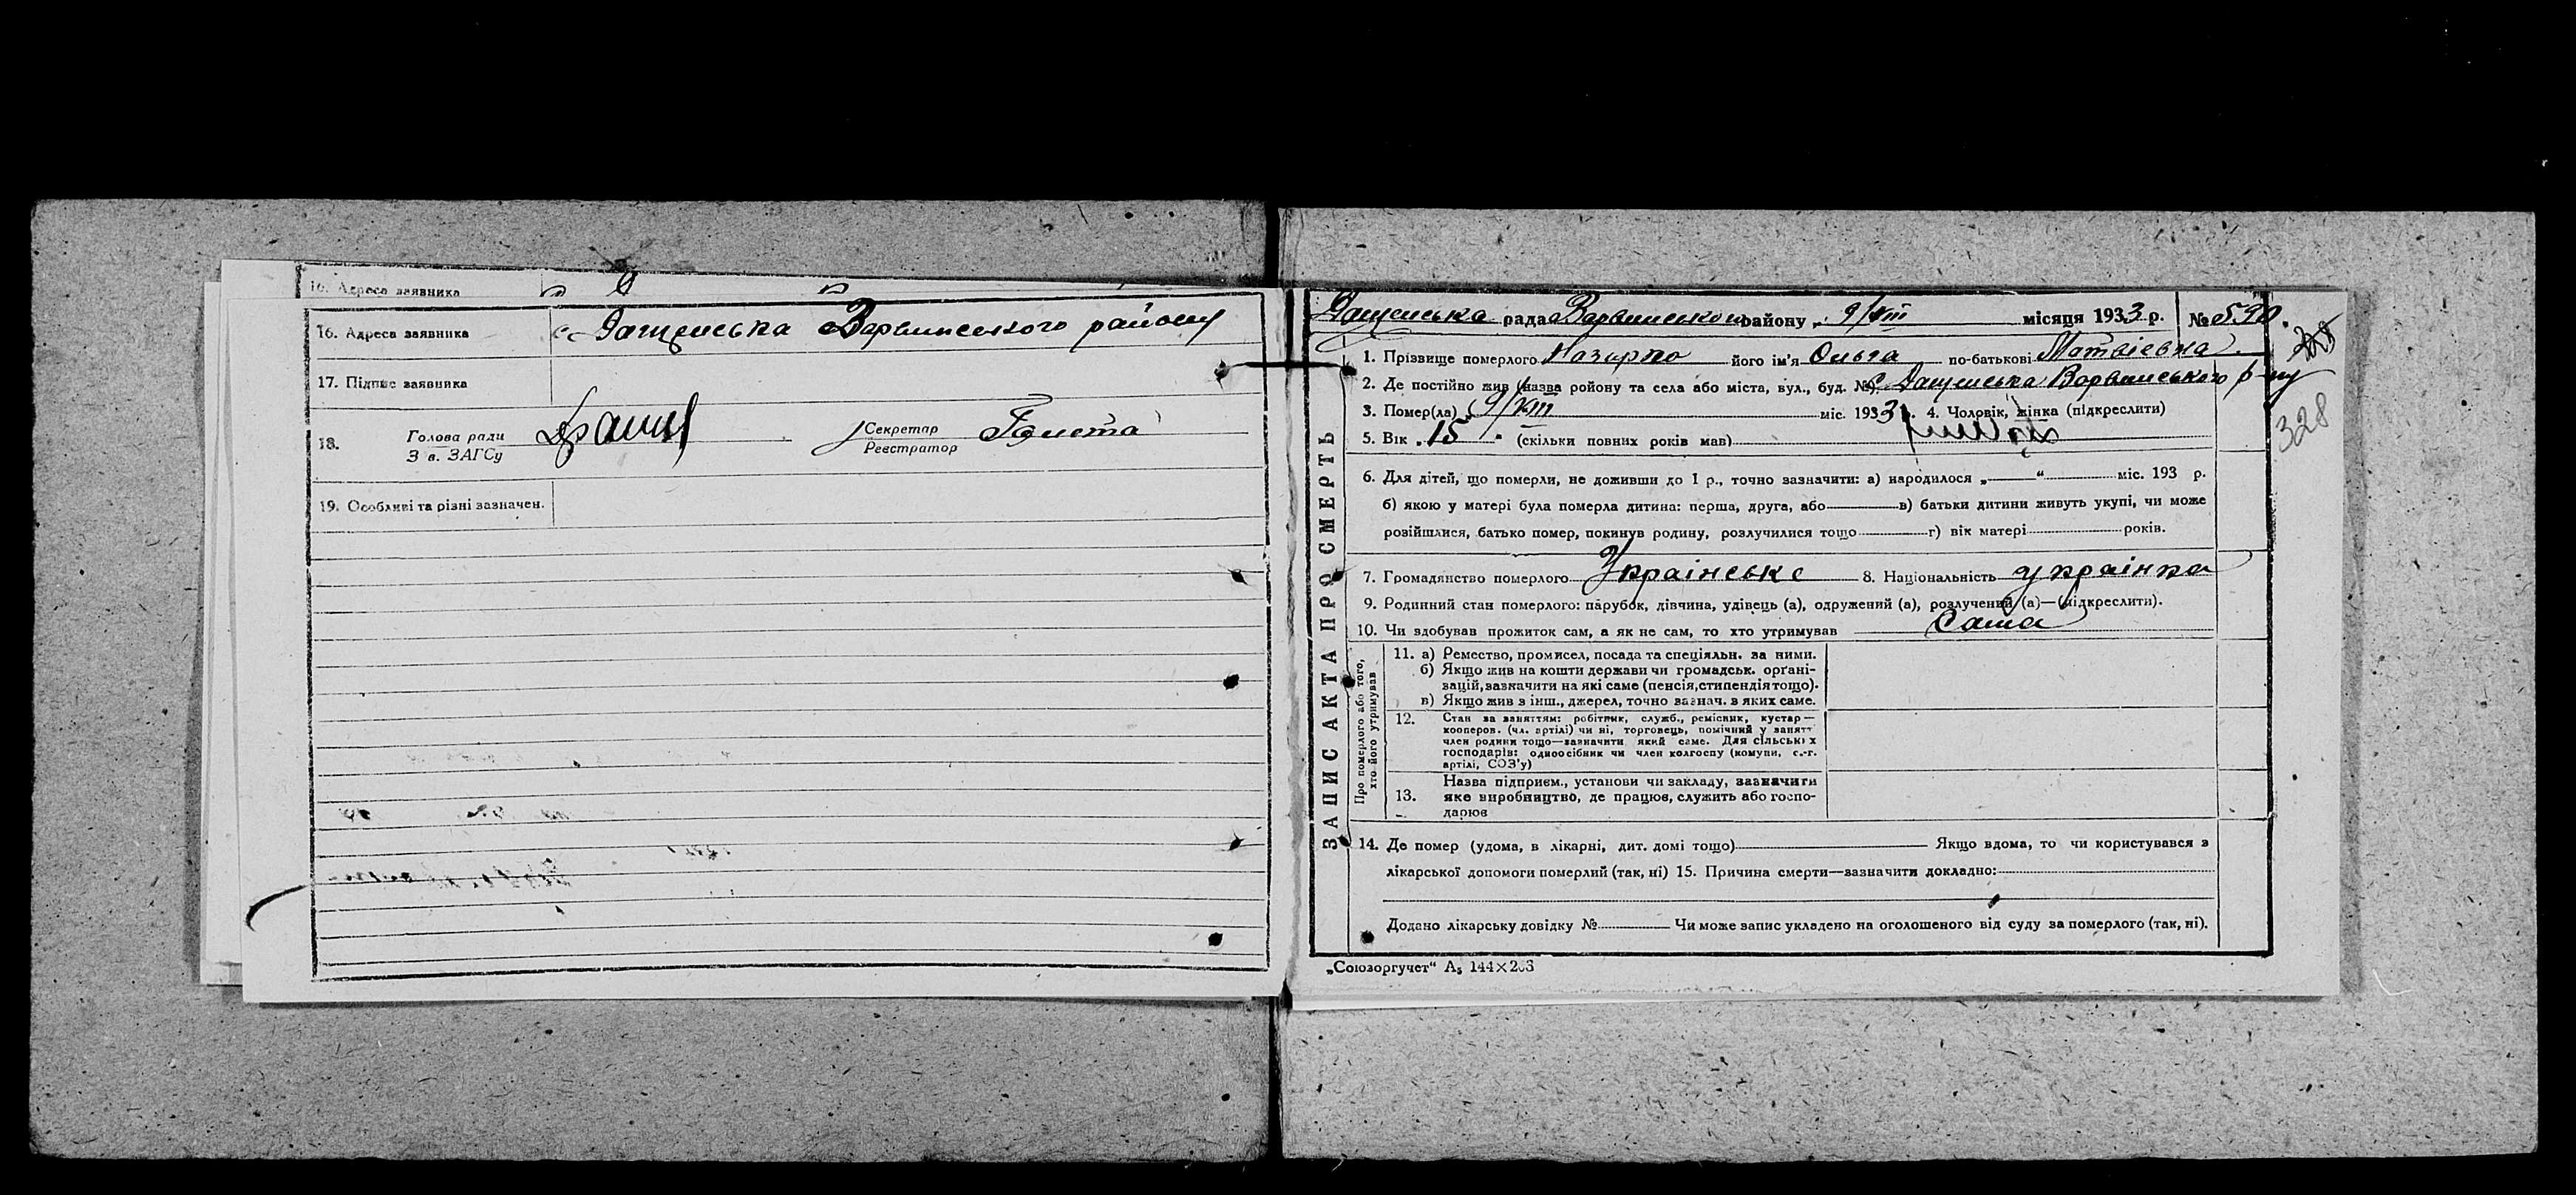 16. Адреса заявника
16. Адреса заявника с. Дащенська Варвинського району
17. Підпис заявника
18. Голова ради Секретар
З в. ЗАГСу Реєстратор
19. Особливі та різні зазначен.
Дащенська рада Варвинського району „ 9/VIII місяця 1933 р. № 590.
1. Прізвище померлого Назарко його ім'я Ольга по-батькові Матвієвна
2. Де постійно жив (назва ройону та села або міста, вул., буд. № с. Дащенська Варвинського р-ну
3. Помер(ла) „ 9/VIII міс. 1933 р. 4. Чоловік, жінка (підкреслити)
328
5. Вік „ 15 " (скільки повних років мав)
6. Для дітей, що померли, не доживши до 1 р., точно зазначити: а) народилося „ “ міс. 193 р.
б) якою у матері була померла дитина: перша, друга, або в) батьки дитини живуть укупі, чи може
розійшлися, батько помер, покинув родину, розлучилися тощо г) вік матері років.
7. Громадянство померлого Українське 8. Національність українка
9. Родинний стан померлого: парубок, дівчина, удівець (а), одружений (а), розлучений (а)—(підкреслити).
10. Чи здобував прожиток сам, а як не сам, то хто утримував Сама
ЗАПИС АКТА ПРО СМЕРТЬ
Про померлого або того, хто його утримував
11. а) Ремество, промисел, посада та спеціяльн. за ними.
б) Якщо жив на кошти держави чи громадськ. орґані-
зацій, зазначити на які саме (пенсія, стипендія тощо).
в) Якщо жив з інш., джерел, точно зазнач. з яких саме.
12. Стан за заняттям: робітник, служб., ремісник, кустар—
кооперов. (чл. артілі) чи ні, торговець, помічний у занятт
член родини тощо—зазначити який саме. Для сільських
господарів: одноосібник чи член колгоспу (комуни, с.-г.
артілі, СОЗ'у)
13. Назва підприєм., установи чи закладу, зазначити
яке виробництво, де працює, служить або госпо-
дарює
14. Де помер (удома, в лікарні, дит. домі тощо) Якщо вдома, то чи користувався з
лікарської допомоги померлий (так, ні) 15. Причина смерти—зазначити докладно:
Додано лікарську довідку № Чи може запис укладено на оголошеного від суду за померлого (так, ні).
„Союзоргучет“ А₅ 144×203